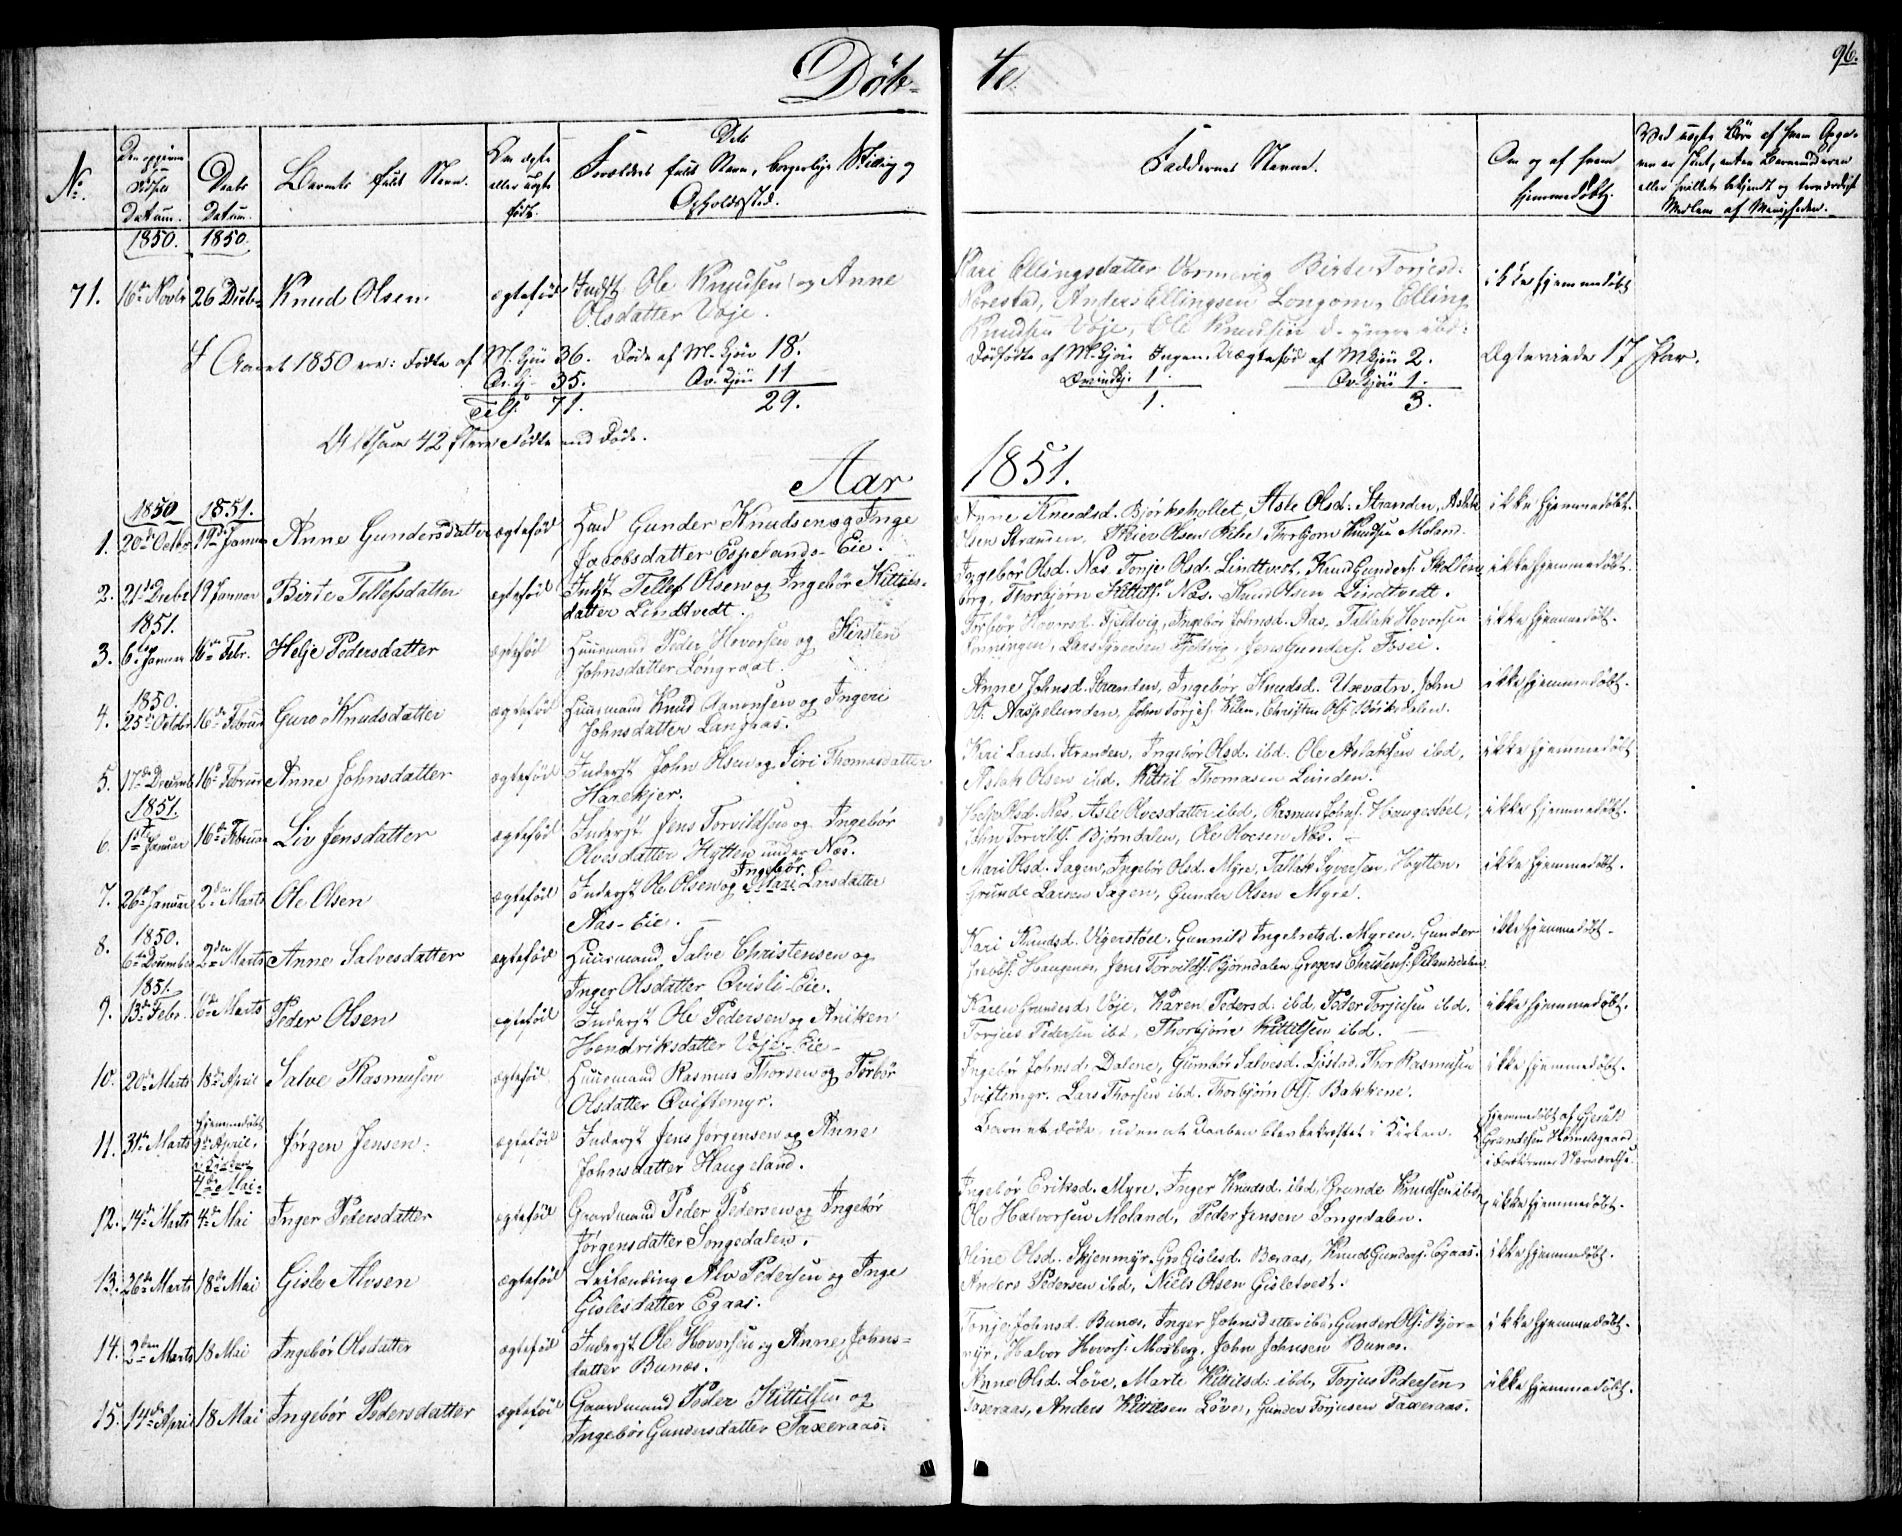 Døb-
te.
96.
No.
Den opgivne Fødsels Datum.
Daabs Datum.
Barnets fulde Navn.
Om ægte eller uægte født.
Forældres fulde Navn, borgerlige Stilling og
Opholdssted.
Faddernes Navne.
Om og af hvem
hjemmedøbt.
1850. 1850.
71. 16de Novbr 26 Decbr Knud Olsen. ægtefød Inderst Ole Knudsen og Anne
Olsdatter Voje.
Kari Ellingsdatter Vormevig Birte Torjesd.
Nærestad, Anders Ellingsen Longom, Elling
Knudsen Voje, Ole Knudsen d. yngre ibd:
ikke hjemmedøbt
I Aaret 1850 ere: Fødte af M. Kjøn 36. Døde af M. Kjøn 18.
Qv. Kj. 35. Qv. Kjøn 11
Tils. 71. 29.
Dødfødte af M. Kjøn Ingen. Uægtefød af M Kjøn 2.
Qvindkj. 1. Qv. Kjøn 1.
1. 3.
Ægteviede 17 Par.
Altsaa 42 flere Fødte end Døde.
Aar
1851.
1850 1851.
1. 20de Octbr 19de Januar Anne Gundersdatter ægtefød Gunder Knudsen og Inge
Jacobsdatter Espelands-Eie.
Anne Knudsd. Bjørkehollet, Asle Olsd. Stranden, Aslak
Olsen Stranden, Olsen Torbjørn Knudsen Moland.
ikke hjemmedøbt.
2. 21de Decbr 19 Januar Birte Tellefsdatter ægtefød Inderst Tellef Olsen og Ingebør Kittils-
datter Lindtvedt.
Ingebør Olsd. Næs Tonje Olsd. Lindtvedt. Knud Gunders.
berg, Thorbjørn Kittels. Næs. Olsen Lindtvedt.
ikke hjemmedøbt.
1851.
3. 6te Januar 16de Febr. Helje Pedersdatter ægtefød Huusmand Peder Hovorsen og Kirsten
Johnsdatter Longraat.
Torbør Hovorsd. Fjeldvig, Ingebør Johnsd. Aas, Tallak Hovorsen
Lars Fjeldvig, Jens Gunders. Fosei.
ikke hjemmedøbt.
1850.
4. 25de Octbr 16de Februar Guro Knudsdatter ægtefød Huusmand Knud Aanonsen og Ingeri
Johnsdatter Langaas.
Anne Johnsd. Stranden, Ingebør Knudsd. Uxvatn, John
Ol. Aaspelunden, John Torjes. Kilen, Christen Ols. Bøiksdalen.
ikke hjemmedøbt.
5. 17de Decembr 16de Februar Anne Johnsdatter ægtefød Inderst John Olsen og Siri Thomasdatter
Harekjer.
Kari Larsd. Stranden, Ingebør Olsd. ibd. Ole Aslaksen ibd,
Aslak Olsen ibd. Kittil Thomasen Lunden.
ikke hjemmedøbt.
1851.
6. 1ste Januar 16de Februar Liv Jensdatter ægtefød Inderst Jens Torvildsen og Ingebør
Olvesdatter Hytten under Næs.
Helje Olsd. Næs, Asle Olvesdatter ibd, Rasmus Johns. Haugestøel,
John Torvilds. Bjørndalen, Ole Olvesen Næs.
ikke hjemmedøbt.
7. 26de Januar 2den Marts Ole Olsen ægtefød Inderst Ole Olsen og Ingebør Mari Larsdatter
Aas-Eie.
Mari Olsd. Sagen, Ingebør Olsd. Myre, Tallak Syversen Hytten.
Grunde Larsen Sagen, Gunder Olsen Myre.
ikke hjemmedøbt.
1850.
8. 6te Decembr 2den Marts Anne Salvesdatter ægtefød Huusmand Salve Christensen og
Inger Olsdatter Qvisli-Eie.
Kari Knudsd. Vigerstøel. Gunnild Ingebretsd. Myren. Gunder
Haugenes, Jens Torvilds. Bjørndalen Gregers Christens.
ikke hjemmedøbt.
1851.
9. 13de Febr. Marts Peder Olsen ægtefød Inderst Ole Pedersen og Aniken
Hendriksdatter Voje-Eie
Karen Grundesd. Voje, Karen Pedersd. ibd, Peder Torjusen ibd.
Torjus Pedersen ibd, Thorbjørn Kittilsen ibd.
ikke hjemmedøbt.
10. 20de Marts 18de April Salve Rasmusen ægtefød Huusmand Rasmus Thorsen og Torbør
Olsdatter Qviftemyr.
Ingebør Johnsd. Dalene, Gunbør Salvesd. Listad, Thor Rasmusen
Qviftemyr. Lars Thorsen ibd. Thorbjørn Ols. Bakkene.
ikke hjemmedøbt.
11. 31te Marts hjemmedøbt 9de April, i Kirken 4de Mai Jørgen Jensen. ægtefød Inderst Jens Jørgensen og Anne
Johnsdatter Haugeland.
Barnet døde, uden at Daaben blev bekræftet i Kirken.
hjemmedøbt af Gjeruld
Grundesen
i Forældrenes Nærværelse.
12. 14de Marts 4de Mai Inger Pedersdatter ægtefød Gaardmand Peder Pedersen og Ingebør
Jørgensdatter Songedalen.
Ingebør Eriksd. Myre, Inger Knudsd. ibd, Grunde Knudsen ibd,
Ole Halvorsen Moland, Peder Jensen Songedalen.
ikke hjemmedøbt.
13. 26de Marts 18de Mai Gisle Alvsen ægtefød Leilænding Alv Pedersen og Inge
Gislesdatter Egaas.
Oline Olsd. Skjenmyr, Gro Gislesd. Bæraas, Knud Gunders. Egaas.
Anders Pedersen ibd, Niels Olsen Gisletvedt.
ikke hjemmedøbt.
14. 2den Marts 18 Mai Ingebør Olsdatter ægtefød Inderst Ole Hovorsen og Anne Johns-
datter Bunæs.
Tonje Johnsd. Bunæs, Inger Johnsdatter ibd, Gunder Ols. Bjor-
myr, Halvor Hovors. Mosberg, John Johnsen Bunæs.
ikke hjemmedøbt.
15. 14de April 18 Mai Ingebør Pedersdatter ægtefød Gaardmand Peder Kittilsen og
Ingebør Gundersdatter Taxeraas.
Anne Olsd. Løve, Marte Kittilsd. ibd, Torjus Pedersen
Taxeraas, Anders Kittilsen Løve, Gunder Torjusen Taxeraas.
ikke hjemmedøbt.